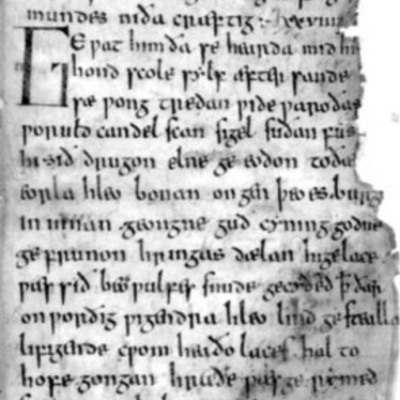 mundes niða cræftig · xxviii
Gewat him ða se hearda mid his
hond scole sylf æfter sande
sæ wong tredan wide waroðas
woruld candel scan sigel suðan fus
hi sið drugon elne ge eodon to ðæ
eorla hleo bonan ongen þeoes burg
in innan geongne guð cyning godne
ge frunon hringas dælan higelace
wæs sið beowulfes snude gecyðed ꝥ ðær
on worðig wigendra hleo lind gestealla
lifigende cwom heaðo laces hal to
hofe gongan hraðe wæs ge rymed